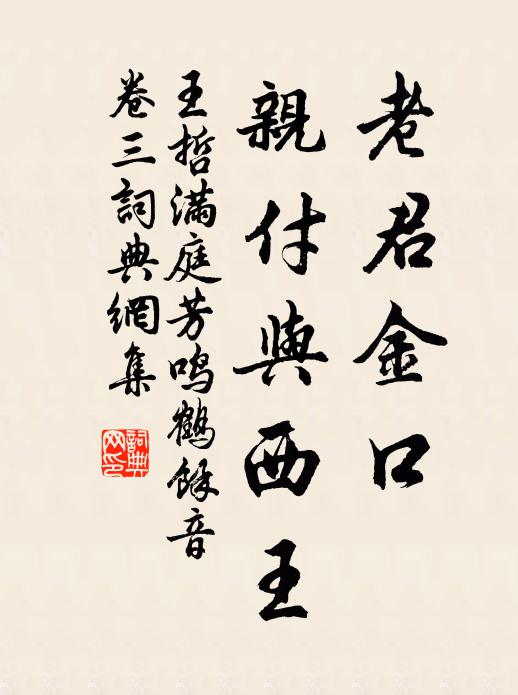 老君金口
親付與西王
王哲满庭芳鸣鶴餘音
卷三詞典網集
詞典
网印